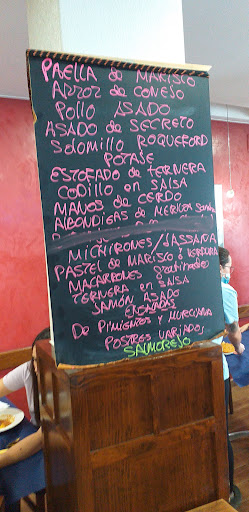 PAELLA de MARISCO
ARROZ de CONEJO
Pollo ASADO
ASADO de SECRETO
Solomillo ROQUEFORD
POTAJE
ESTOFADO de TERNERA
Codillo en SALSA
MANOS de CERDO
ALBONDIGAS de MERLUZA
MICHIRONES / ASSANDA
PASTEL de MARISCO o VERDURA
MACARRONES gratinados
TERNERA en SALSA
JAMÓN ASADO
ENSALADAS
De PIMIENTOS y MURCIANA
POSTRES VARIADOS
SALMOREJO